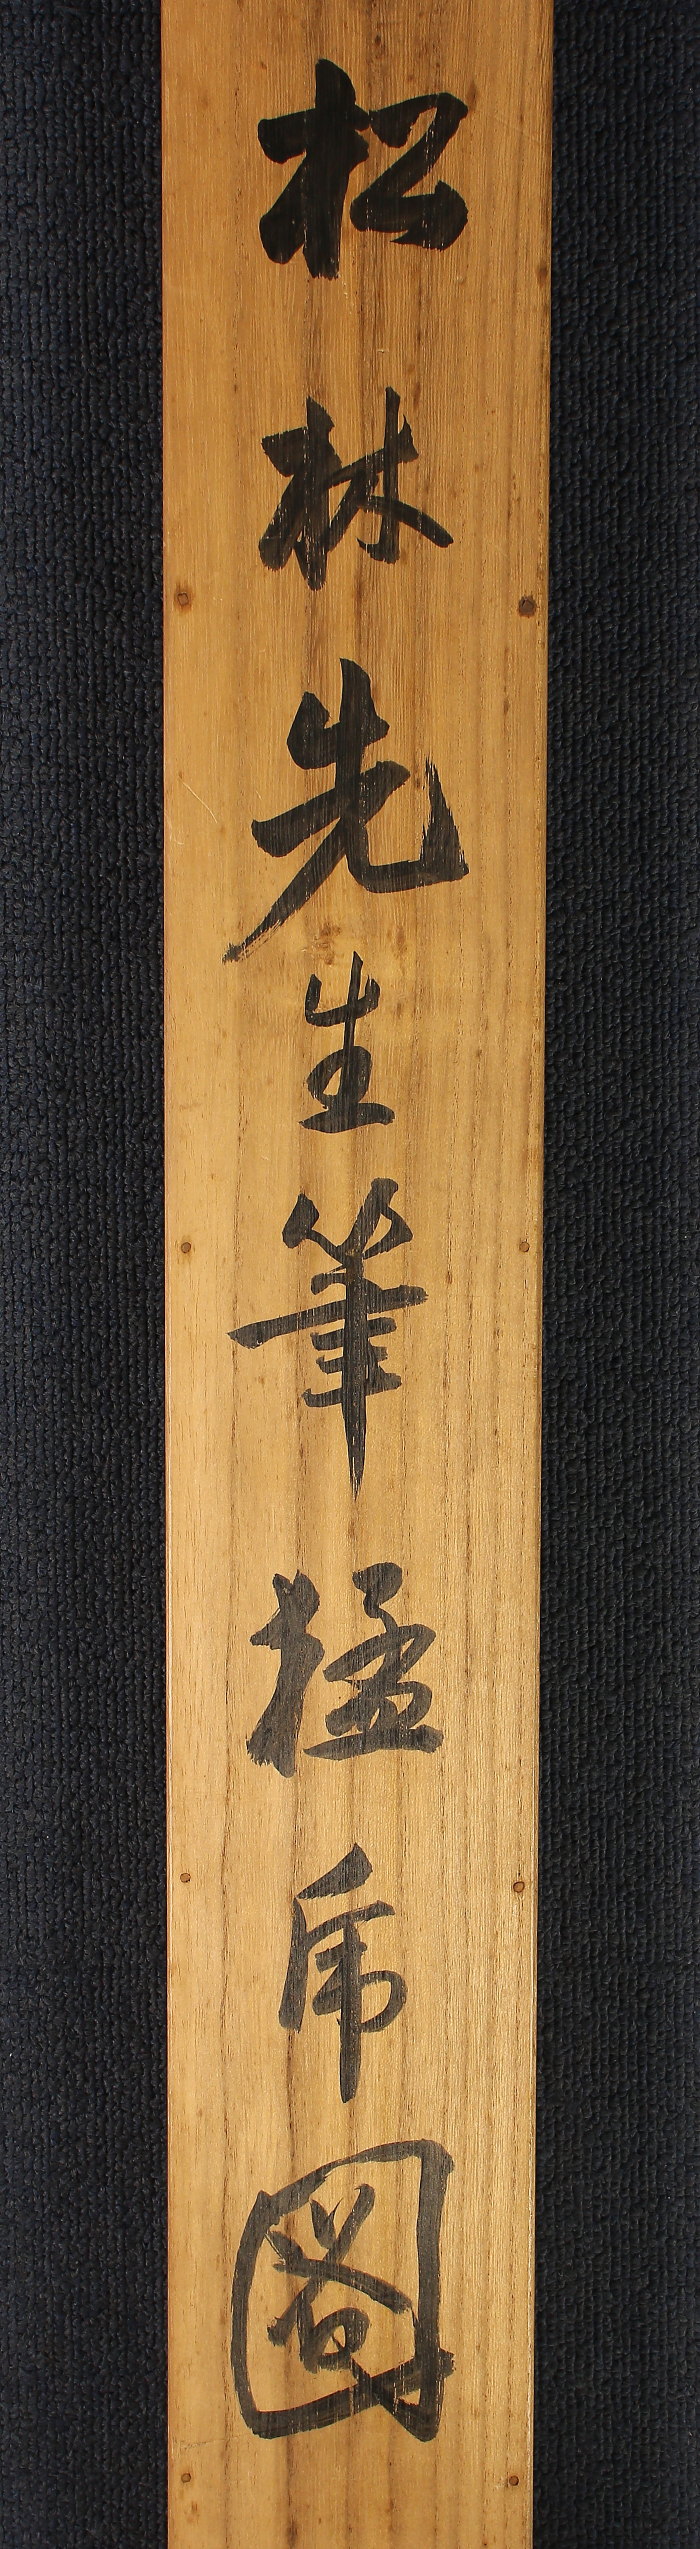 松林先生筆猛虎圖